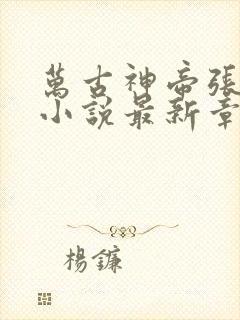 萬古神帝張
小說最新章
楊鐮